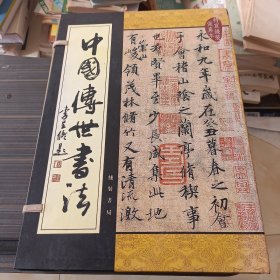 中國傳世書法
線裝書局
永和九年歲在癸丑暮春之初會
于會稽山陰之蘭亭脩稧事
也羣賢畢至少長咸集此地
有崇山峻領茂林脩竹又有清流激